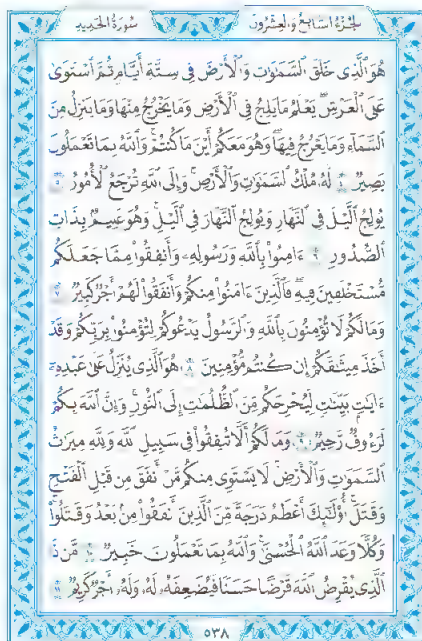 الجزء السابع والعشرون سورة الحديد
هُوَ ٱلَّذِى خَلَقَ ٱلسَّمَٰوَٰتِ وَٱلْأَرْضَ فِى سِتَّةِ أَيَّامٍ ثُمَّ ٱسْتَوَىٰ
عَلَى ٱلْعَرْشِ ۚ يَعْلَمُ مَا يَلِجُ فِى ٱلْأَرْضِ وَمَا يَخْرُجُ مِنْهَا وَمَا يَنزِلُ مِنَ
ٱلسَّمَآءِ وَمَا يَعْرُجُ فِيهَا ۖ وَهُوَ مَعَكُمْ أَيْنَ مَا كُنتُمْ ۚ وَٱللَّهُ بِمَا تَعْمَلُونَ
بَصِيرٌ ٤ لَّهُۥ مُلْكُ ٱلسَّمَٰوَٰتِ وَٱلْأَرْضِ ۚ وَإِلَى ٱللَّهِ تُرْجَعُ ٱلْأُمُورُ ٥
يُولِجُ ٱلَّيْلَ فِى ٱلنَّهَارِ وَيُولِجُ ٱلنَّهَارَ فِى ٱلَّيْلِ ۚ وَهُوَ عَلِيمٌۢ بِذَاتِ
ٱلصُّدُورِ ٦ ءَامِنُوا۟ بِٱللَّهِ وَرَسُولِهِۦ وَأَنفِقُوا۟ مِمَّا جَعَلَكُم
مُّسْتَخْلَفِينَ فِيهِ ۖ فَٱلَّذِينَ ءَامَنُوا۟ مِنكُمْ وَأَنفَقُوا۟ لَهُمْ أَجْرٌ كَبِيرٌ ٧
وَمَا لَكُمْ لَا تُؤْمِنُونَ بِٱللَّهِ ۙ وَٱلرَّسُولُ يَدْعُوكُمْ لِتُؤْمِنُوا۟ بِرَبِّكُمْ وَقَدْ
أَخَذَ مِيثَٰقَكُمْ إِن كُنتُم مُّؤْمِنِينَ ٨ هُوَ ٱلَّذِى يُنَزِّلُ عَلَىٰ عَبْدِهِۦٓ
ءَايَٰتٍۭ بَيِّنَٰتٍ لِّيُخْرِجَكُم مِّنَ ٱلظُّلُمَٰتِ إِلَى ٱلنُّورِ ۚ وَإِنَّ ٱللَّهَ بِكُمْ
لَرَءُوفٌ رَّحِيمٌ ٩ وَمَا لَكُمْ أَلَّا تُنفِقُوا۟ فِى سَبِيلِ ٱللَّهِ وَلِلَّهِ مِيرَٰثُ
ٱلسَّمَٰوَٰتِ وَٱلْأَرْضِ ۚ لَا يَسْتَوِى مِنكُم مَّنْ أَنفَقَ مِن قَبْلِ ٱلْفَتْحِ
وَقَٰتَلَ ۚ أُو۟لَٰٓئِكَ أَعْظَمُ دَرَجَةً مِّنَ ٱلَّذِينَ أَنفَقُوا۟ مِنۢ بَعْدُ وَقَٰتَلُوا۟ ۚ
وَكُلًّا وَعَدَ ٱللَّهُ ٱلْحُسْنَىٰ ۚ وَٱللَّهُ بِمَا تَعْمَلُونَ خَبِيرٌ ١٠ مَّن ذَا
ٱلَّذِى يُقْرِضُ ٱللَّهَ قَرْضًا حَسَنًا فَيُضَٰعِفَهُۥ لَهُۥ وَلَهُۥٓ أَجْرٌ كَرِيمٌ ١١
٥٣٨